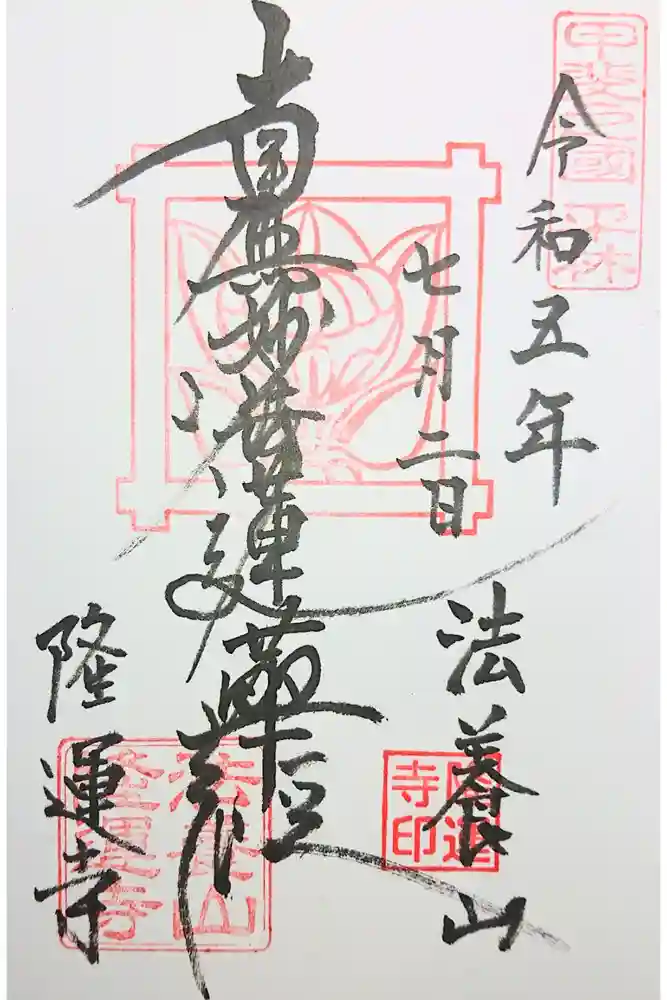 甲斐国 平林
令和五年
七月二日
南無妙法蓮華経
法養山
隆運寺
隆運寺印
法養山
隆運寺